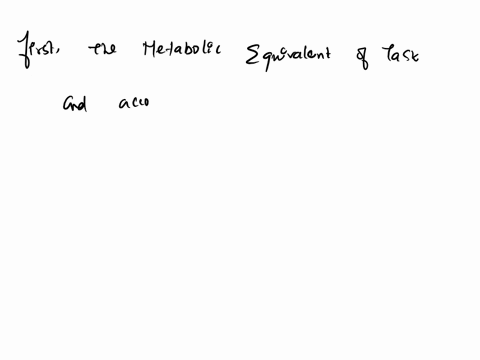 First, the Metabolic Equivalent of Task
and acco